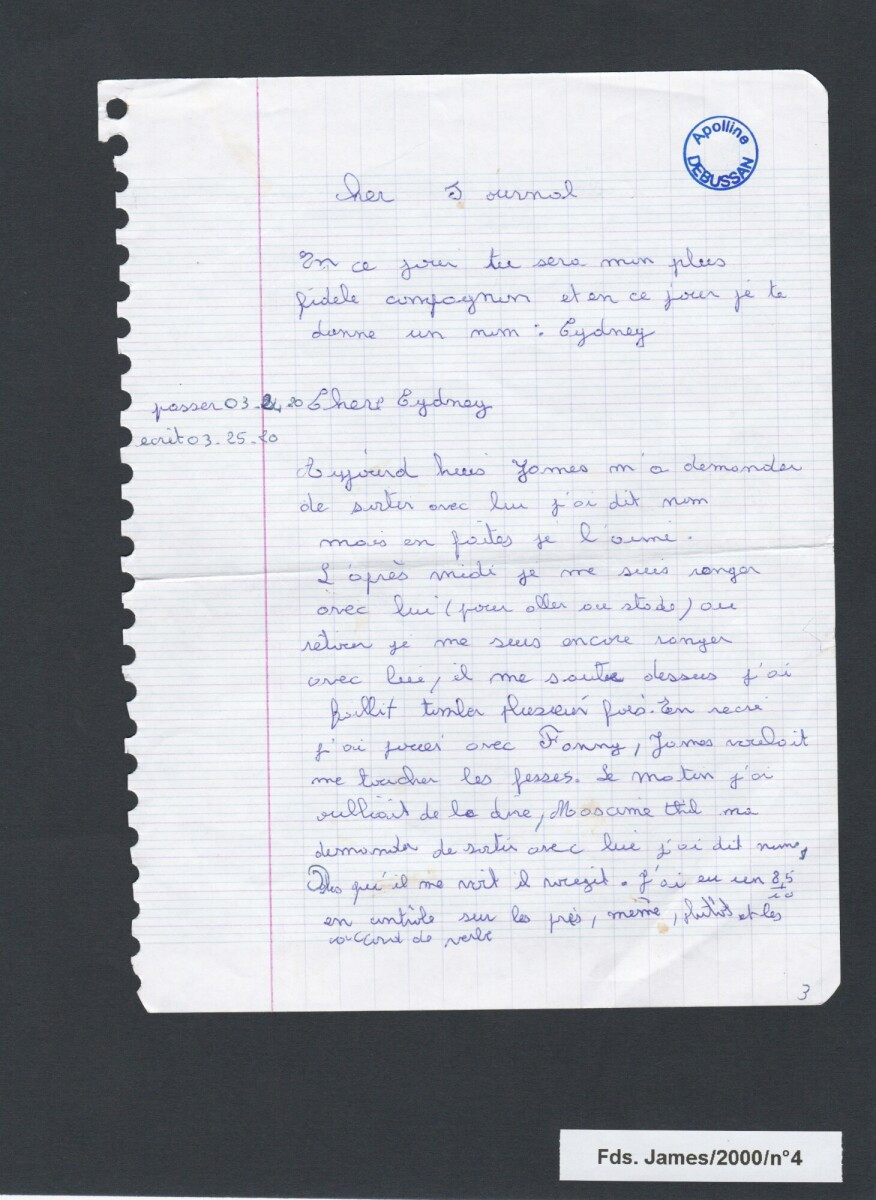 Apolline
DEBUSSAN
Cher Journal
En ce jour tu sera mon plus
fidele compagnon et en ce jour je te
donne un nom : Cydney
passer 03.24.20 Chere Cydney
ecrit 03.25.20
Aujourd huis James m'a demander
de sortir avec lui j'ai dit non
mais en faites je l'aime.
L'après midi je me suis ranger
avec lui (pour aller au stade) au
retour je me suis encore ranger
avec lui, il me saute dessus j'ai
faillit tomber plusieur fois. En recré
j'ai jouer avec Fanny, James voulait
me toucher les fesses. Le matin j'ai
oulliait de la dire, Maxime ma
demander de sortir avec lui j'ai dit non,
Dès qu'il me voit il rougit. J'ai eu un 8,5
10
en contrôle sur les près, même, plutôt et les
accord de verbe
3
Fds. James/2000/n°4